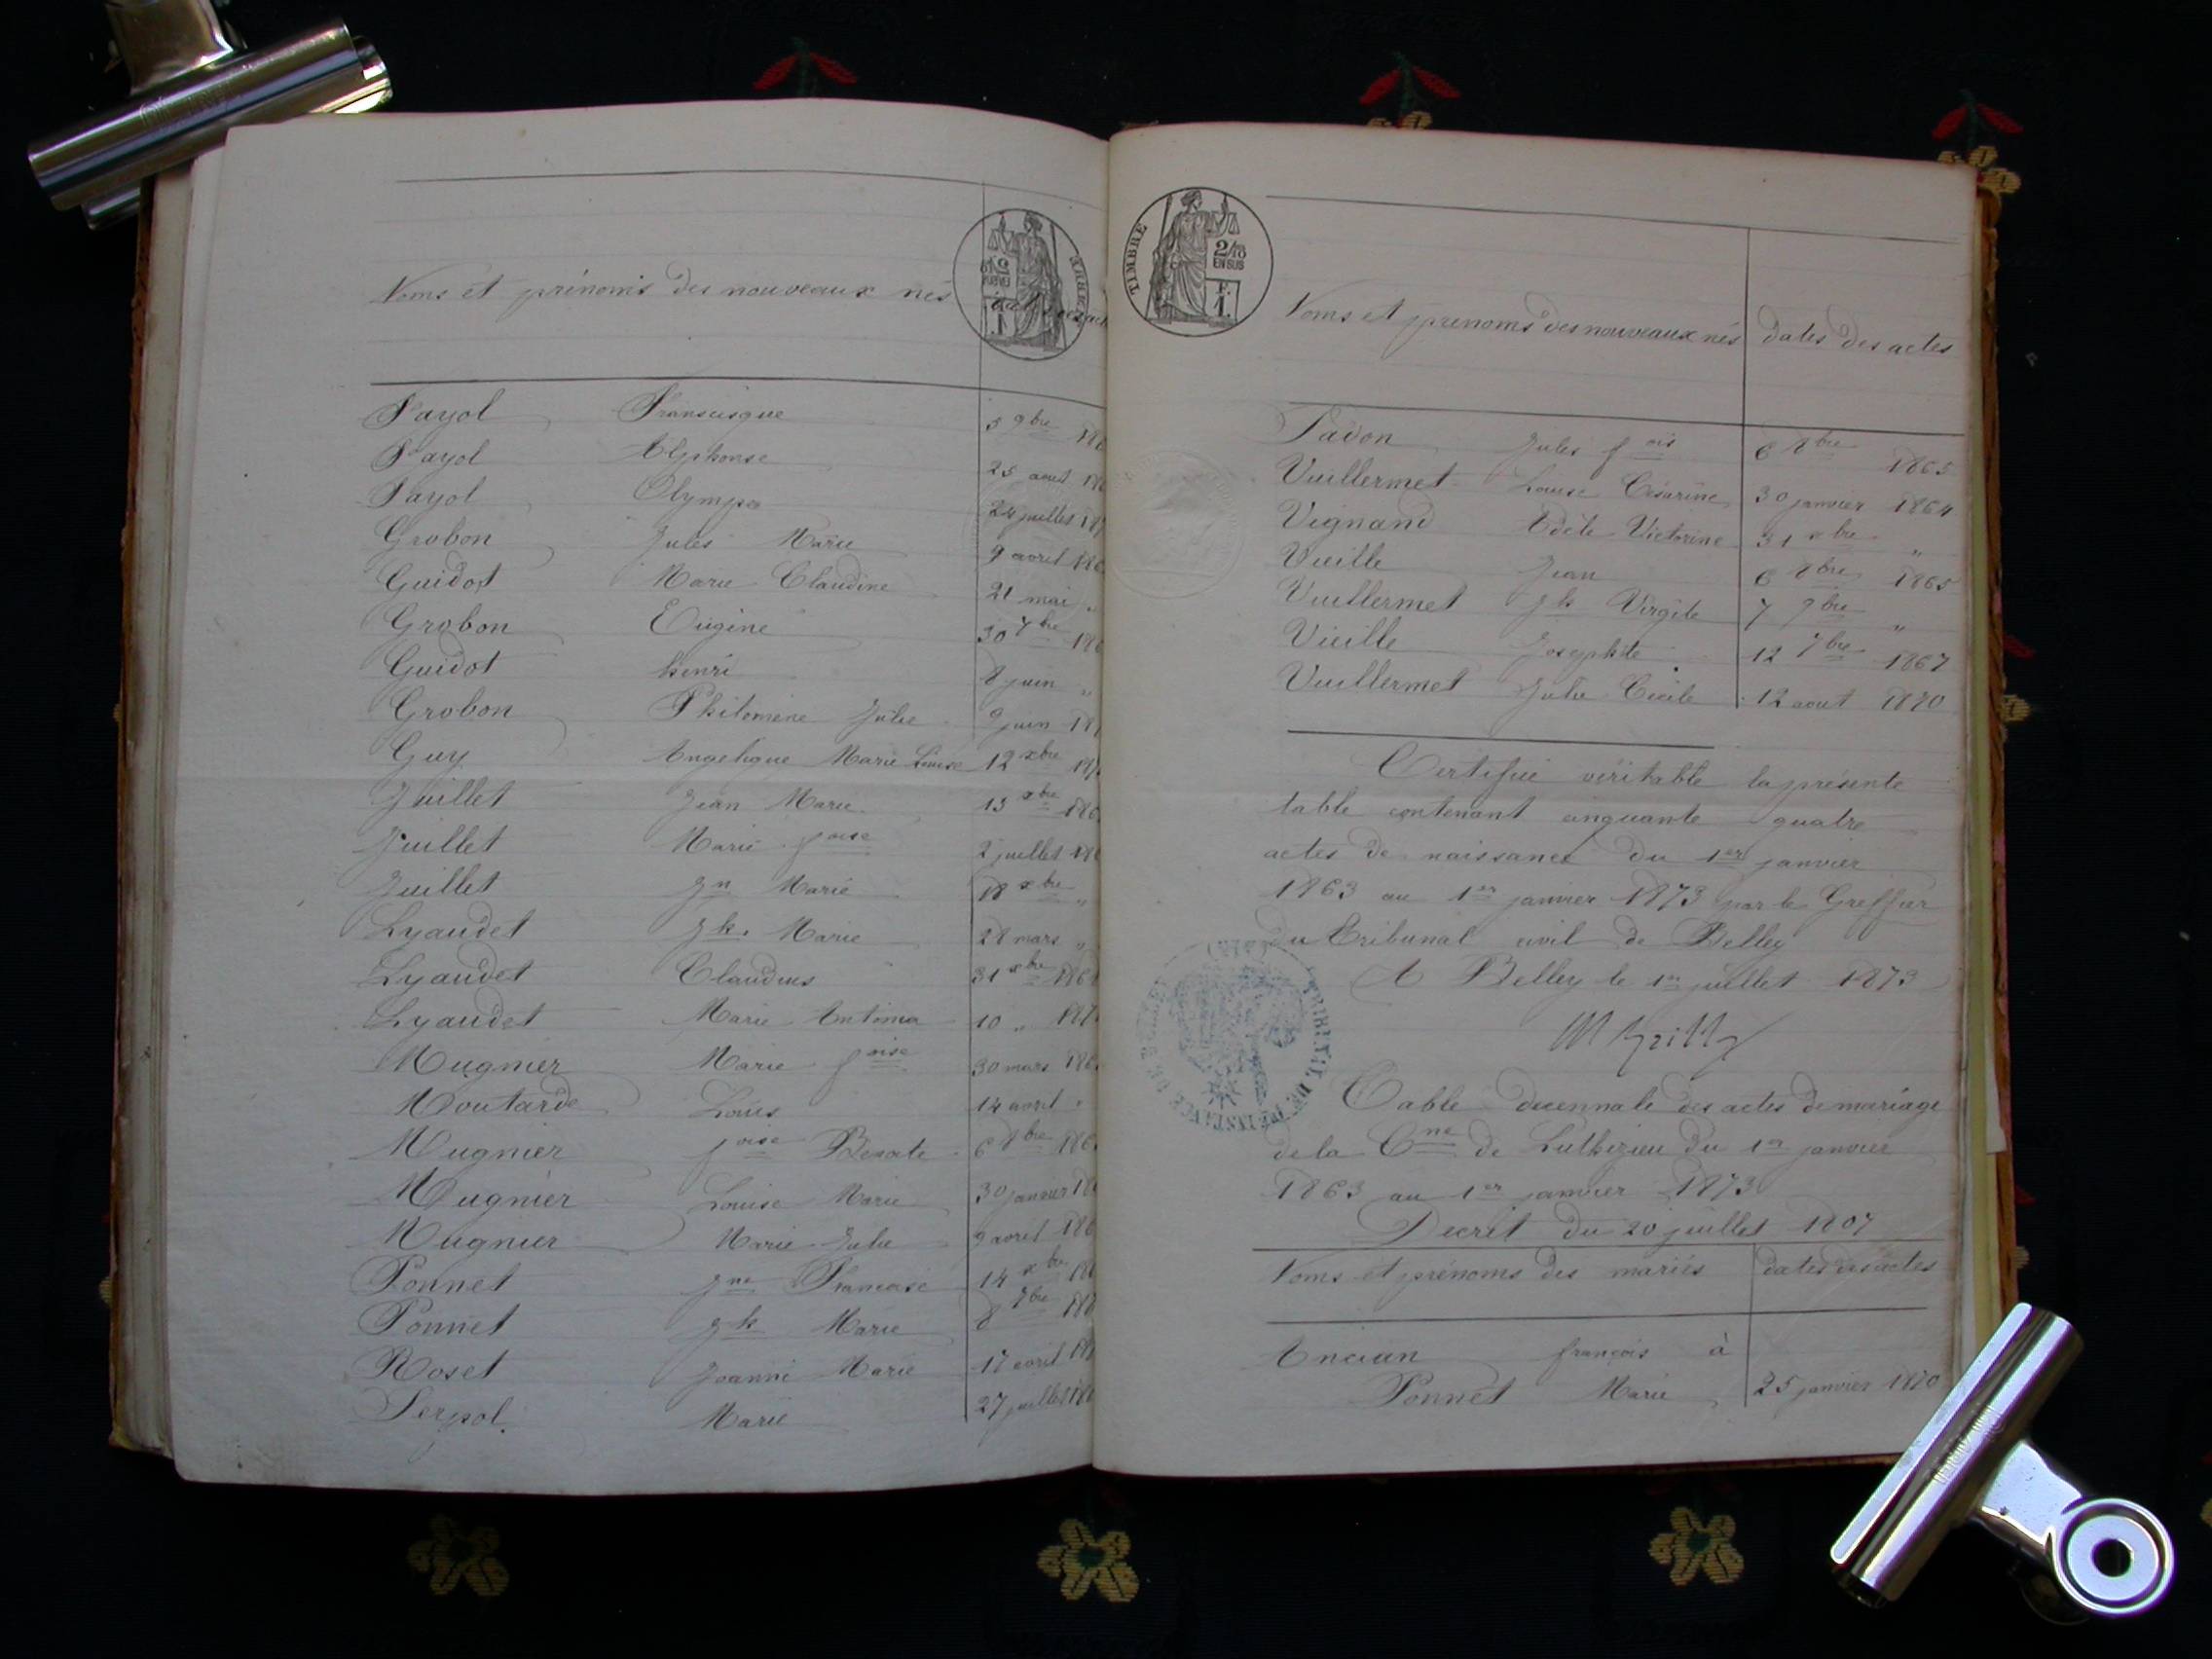 Noms et prénoms des nouveaux nés
Fayol Francisque 5 9bre
Fayol Alphonse 25 aout
Fayol Olympe 24 juillet
Grobon Jules Marie 9 avril
Guidot Marie Claudine 21 mai "
Grobon Eugène 30 7bre
Guidot henri 8 juin "
Grobon Philomène Julie 9 juin
Guy Angelique Marie Louise 12 xbre
Juillet Jean Marie 15 xbre
Juillet Marie foise 2 juillet
Juillet Jn Marie 18 xbre "
Lyaudet Jh. Marie 28 mars "
Lyaudet Claudius 31 xbre
Lyaudet Marie 10 "
Mugnier Marie foise 30 mars
Moutarde Louis 14 avril "
Mugnier foise Benoite 6 8bre
Mugnier Louise Marie 30 janvier
Mugnier Marie Julie 9 avril
Ponnet Jne Francoise 14 xbre
Ponnet Jh Marie 8 7bre
Roset Joanni Marie 17 avril
Serpol Marie 27 juillet
TIMBRE
2/10
EN SUS
F.
1.
Noms et prenoms des nouveaux nés dates des actes
Jules fois 6 8bre 1865
Vuillermet Louise Césarine 30 janvier 1864
Vignand Adèle Victorine 31 xbre "
Vieille Jean 6 8bre 1865
Vuillermet Jh Virgile 7 9bre "
Vieille Josephte 12 7bre 1867
Vuillermet Julie Cécile 12 aout 1870
Certifié véritable la présente
table contenant cinquante quatre
actes de naissance du 1er janvier
1863 au 1er janvier 1873 par le Greffier
du Tribunal civil de Belley
A Belley le 1er juillet 1873
TRIBUNAL DE 1ère INSTANCE DE BELLEY (AIN)
Table decennale des actes de mariage
de la Cne de Luthézieu du 1er janvier
1863 au 1er janvier 1873
Decret du 20 juillet 1807
Noms et prénoms des mariés dates des actes
Ancian françois à
Ponnet Marie 25 janvier 1870